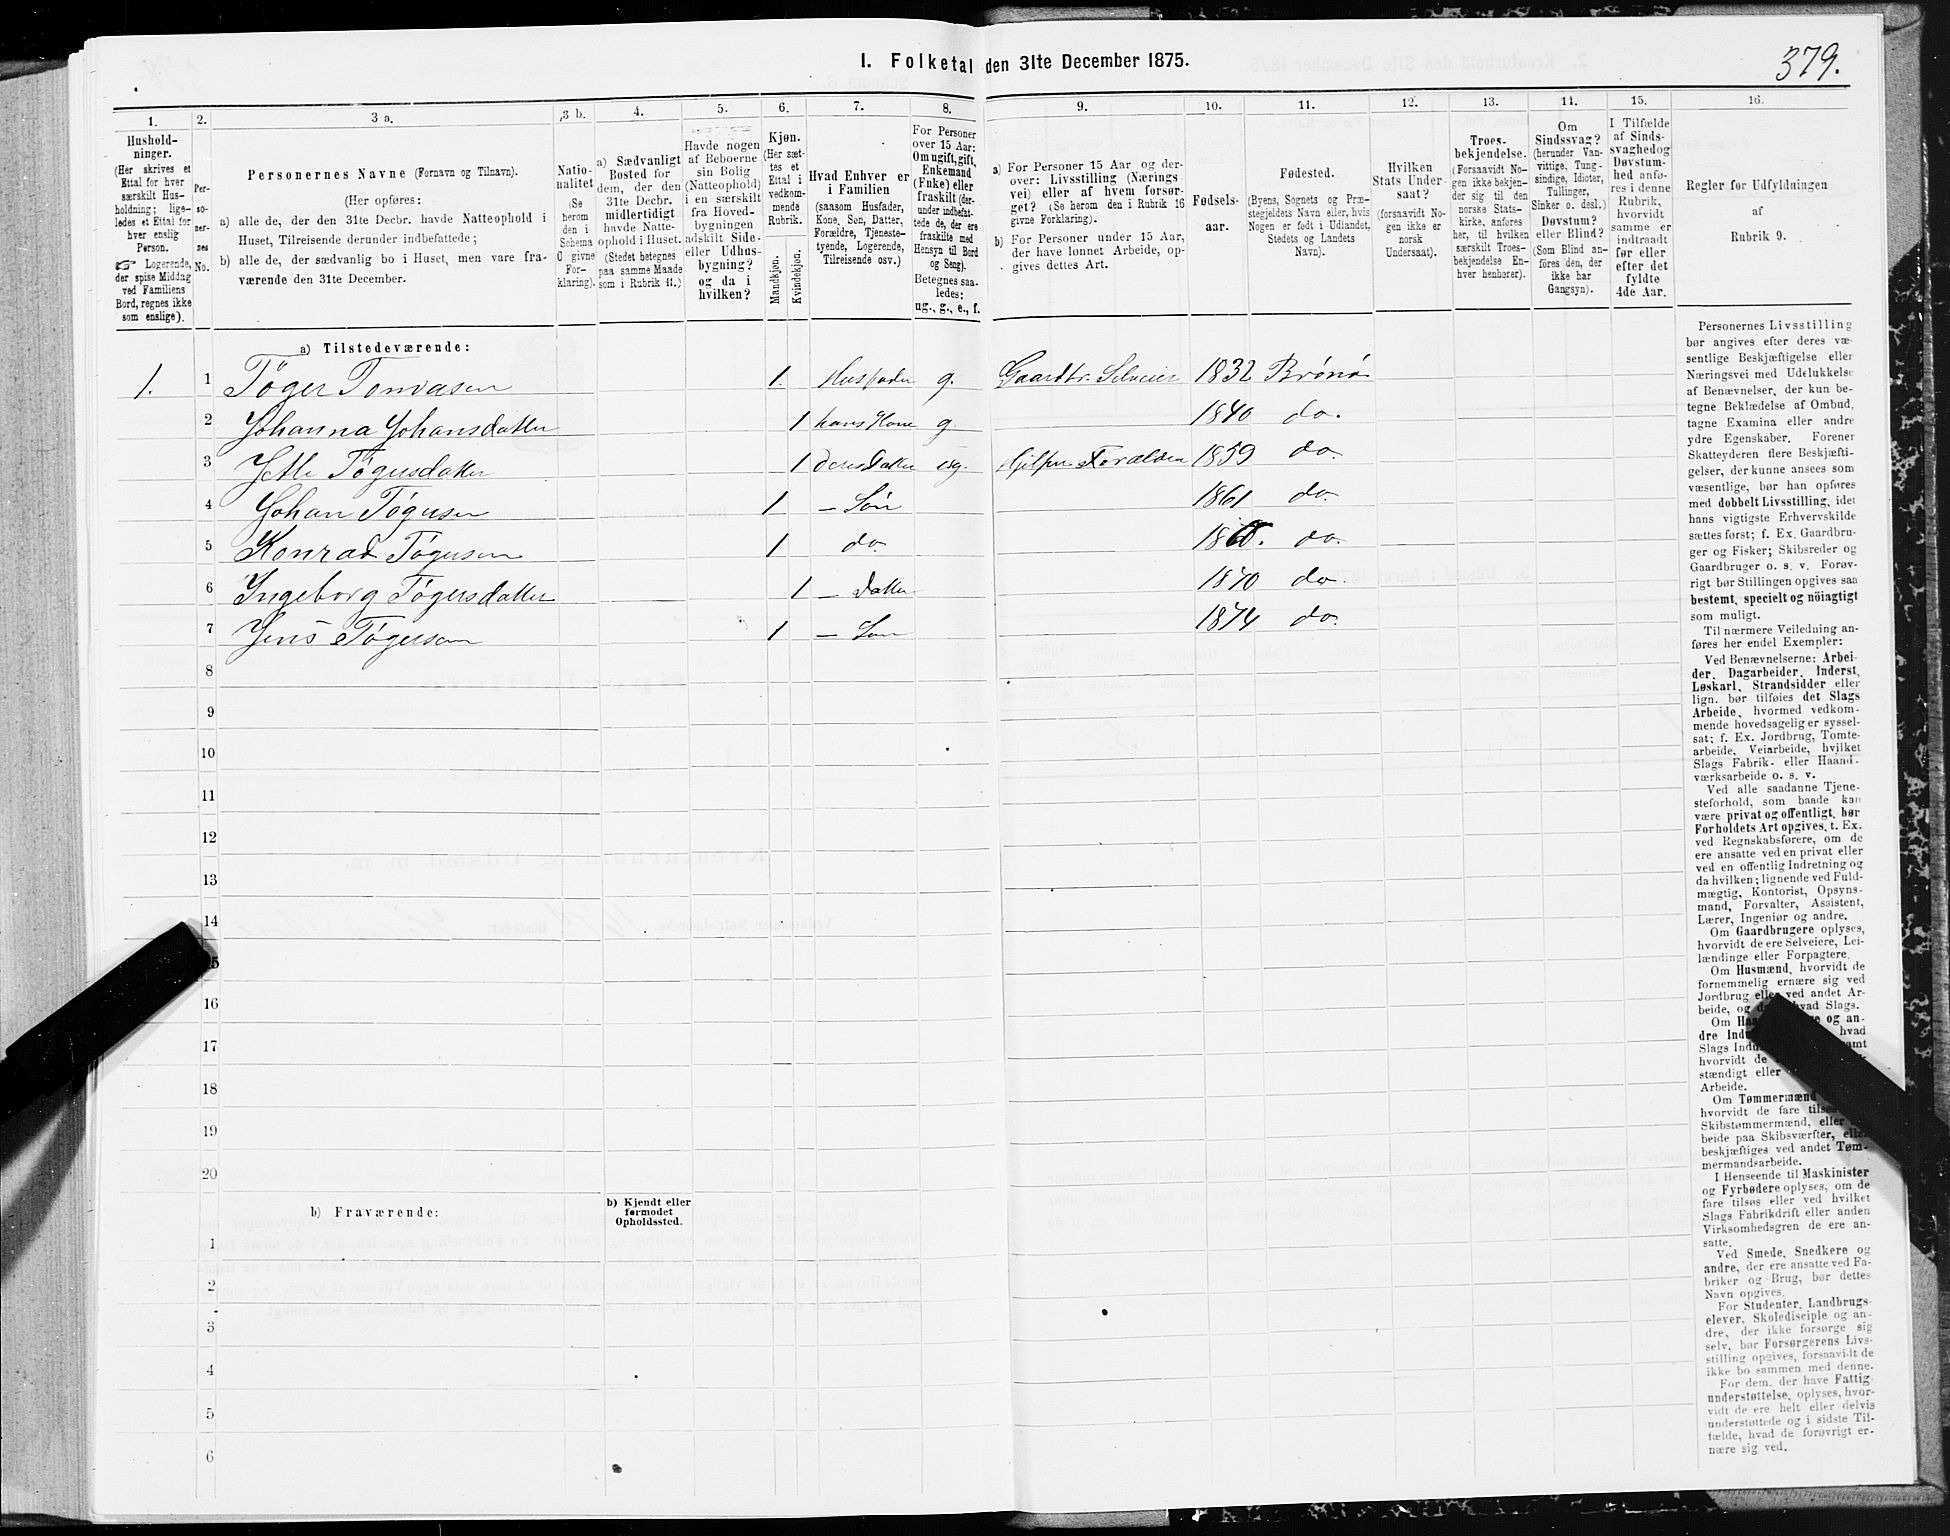 I. Folketal den 31te December 1875.
379.
1.
Hushold-
ninger.
(Her skrives et
Ettal for hver
særskilt Hus-
holdning; lige-
ledes et Ettal for
hver enslig
Person.
☞ Logerende,
der spise Middag
ved Familiens
Bord, regnes ikke
som enslige).
2.
Per-
so-
ner-
nes
No.
3 a.
Personernes Navne (Fornavn og Tilnavn).
(Her opføres:
a) alle de, der den 31te Decbr. havde Natteophold i
Huset, Tilreisende derunder indbefattede;
b) alle de, der sædvanlig bo i Huset, men vare fra-
værende den 31te December.
3 b.
Natio-
nalitet
(Se
herom
den i
Schema
C givne
For-
klaring).
4.
a) Sædvanligt
Bosted for
dem, der den
31te Decbr.
midlertidigt
havde Natte-
ophold i Huset.
(Stedet betegnes
paa samme Maade
som i Rubrik 11.)
5.
Havde nogen
af Beboerne
sin Bolig
(Natteophold)
i en særskilt
fra Hoved-
bygningen
adskilt Side-
eller Udhus-
bygning?
og da i
hvilken?
6.
Kjøn.
(Her sæt-
tes et
Ettal i
vedkom-
mende
Rubrik.
Mandkjøn.
Kvindekjøn.
7.
Hvad Enhver er
i Familien
(saasom Husfader,
Kone, Søn, Datter,
Forældre, Tjeneste-
tyende, Logerende,
Tilreisende osv.)
8.
For Personer
over 15 Aar:
Om ugift, gift,
Enkemand
(Enke) eller
fraskilt (der-
under indbefat-
tede de, der ere
fraskilte med
Hensyn til Bord
og Seng).
Betegnes saa-
ledes:
ug., g., e., f.
9.
a) For Personer 15 Aar og der-
over: Livsstilling (Nærings-
vei) eller af hvem forsør-
get? (Se herom den i Rubrik 16
givne Forklaring).
b) For Personer under 15 Aar,
der have lønnet Arbeide, op-
gives dettes Art.
10.
Fødsels-
aar.
11.
Fødested.
(Byens, Sognets og Præ-
stegjeldets Navn eller, hvis
Nogen er født i Udlandet,
Stedets og Landets
Navn).
12.
Hvilken
Stats Under-
saat?
(forsaavidt No-
gen ikke er
norsk
Undersaat).
13.
Troes-
bekjendelse.
(Forsaavidt No-
gen ikke bekjen-
der sig til den
norske Stats-
kirke, anføres
her, til hvilken
særskilt Troes-
bekjendelse En-
hver henhører).
14.
Om
Sindssvag?
(herunder Van-
vittige, Tung-
sindige, Idioter,
Tullinger,
Sinker o. desl.)
Døvstum?
eller Blind?
(Som Blind an-
føres den, der
ikke har
Gangsyn).
15.
I Tilfælde
af Sinds-
svaghed og
Døvstum-
hed anfø-
res i denne
Rubrik,
hvorvidt
samme er
indtraadt
før eller
efter det
fyldte
4de Aar.
16.
Regler for Udfyldningen
af
Rubrik 9.
a) Tilstedeværende:
1. 1 Tøger Tomasen 1. Husfader g. Gaardbr. Selveier 1832 Brønø
2 Johanna Johansdatter 1 hans Kone g. 1840 do.
3 Jette Tøgersdatter 1 deres Datter ug. Hjelper Forældre 1859 do.
4 Johan Tøgersen 1 – Søn 1861 do.
5 Konrad Tøgersen 1 do. do.
6 Ingeborg Tøgersdatter 1 – Datter 1870 do.
7 Jens Tøgersen 1 – Søn 1874 do.
8
9
10
11
12
13
14
15
16
17
18
19
20
b) Fraværende:
b) Kjendt eller
formodet
Opholdssted.
1
2
3
4
5
6
Personernes Livsstilling
bør angives efter deres væ-
sentlige Beskjæftigelse eller
Næringsvei med Udelukkelse
af Benævnelser, der kun be-
tegne Beklædelse af Ombud,
tagne Examina eller andre
ydre Egenskaber. Forener
Skatteyderen flere Beskjæfti-
gelser, der kunne ansees som
væsentlige, bør han opføres
med dobbelt Livsstilling, idet
hans vigtigste Erhvervskilde
sættes først; f. Ex. Gaardbru-
ger og Fisker; Skibsreder og
Gaardbruger o. s. v. Forøv-
rigt bør Stillingen opgives saa
bestemt, specielt og nøiagtigt
som muligt.
Til nærmere Veiledning an-
føres her endel Exempler:
Ved Benævnelserne: Arbei-
der, Dagarbeider, Inderst,
Løskarl, Strandsidder eller
lign. bør tilføies det Slags
Arbeide, hvormed vedkom-
mende hovedsagelig er syssel-
sat; f. Ex. Jordbrug, Tomte-
arbeide, Veiarbeide, hvilket
Slags Fabrik- eller Haand-
værksarbeide o. s. v.
Ved alle saadanne Tjene-
steforhold, som baade kan
være privat og offentligt, bør
Forholdets Art opgives, t. Ex.
ved Regnskabsførere, om de
ere ansatte ved en privat eller
ved en offentlig Indretning og
da hvilken; lignende ved Fuld-
mægtig, Kontorist, Opsyns-
mand, Forvalter, Assistent,
Lærer, Ingeniør og andre.
Om Gaardbrugere oplyses,
hvorvidt de ere Selveiere, Lei-
lændinge eller Forpagtere.
Om Husmænd, hvorvidt de
fornemmelig ernære sig ved
Jordbrug eller ved andet Ar-
beide, og hvad Slags.
Om og an-
dre hvad
Slags
hvorvidt de
stændigt eller
Arbeide.
Om Tømmermænd
hvorvidt de fare
Skibstømmermænd, eller
beide paa Skibsværfter, eller
beskjæftiges ved andet Tøm-
mermandsarbeide.
I Henseende til Maskinister
og Fyrbødere oplyses, om de
fare tilsøs eller ved hvilket
Slags Fabrikdrift eller anden
Virksomhedsgren de ere an-
satte.
Ved Smede, Snedkere og
andre, der ere ansatte ved Fa-
briker og Brug, bør dettes
Navn opgives.
For Studenter, Landbrugs-
elever, Skoledisciple og an-
dre, der ikke forsørge sig
selv, bør Forsørgerens Livs-
stilling opgives, forsaavidt de
ikke bo sammen med denne.
For dem, der have Fattig-
understøttelse, oplyses, hvor-
vidt de ere helt eller delvis
understøttede og i sidste Til-
fælde, hvad de forøvrigt er-
nære sig ved.